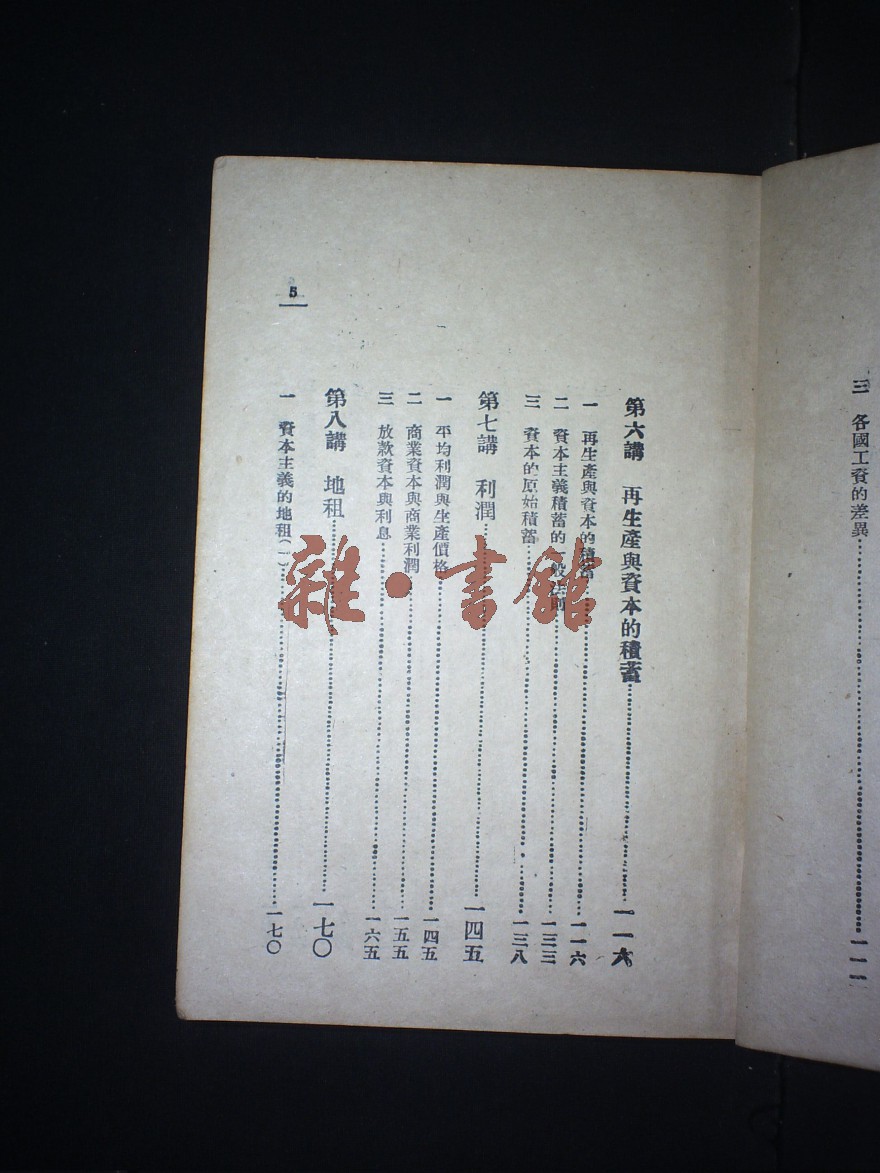 三 各國工資的差異……一一一
第六講 再生產與資本的積蓄……一一六
一 再生產與資本的積蓄……一一六
二 資本主義積蓄的一般法則……一三三
三 資本的原始積蓄……一三八
第七講 利潤……一四五
一 平均利潤與生產價格……一四五
二 商業資本與商業利潤……一五五
三 放款資本與利息……一六五
第八講 地租……一七〇
一 資本主義的地租(一)……一七〇
5
雜·書館